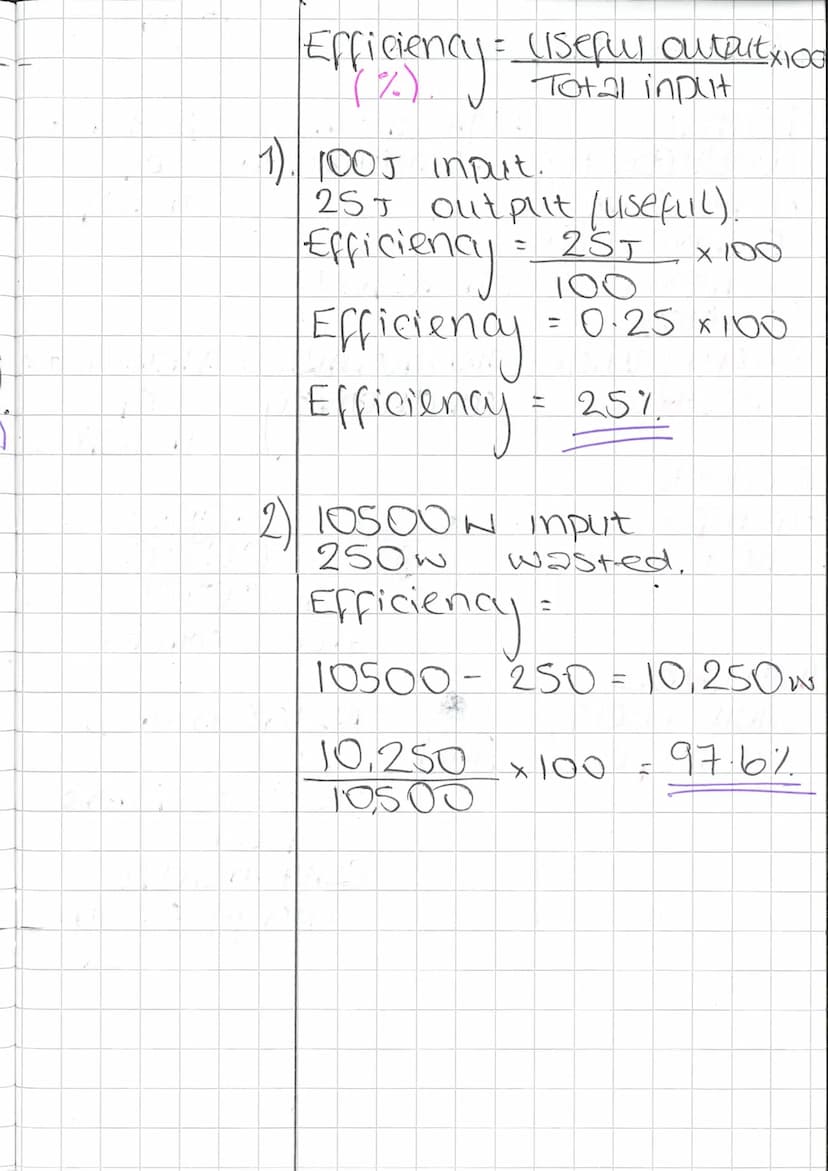 Efficiency = Useful output x100
(%). Total input
1). 100J input.
25J output (useful).
Efficiency = 25J x 100
100
Efficiency = 0.25 x 100
Efficiency = 25%.
2) 10500W input
250W wasted.
Efficiency =
10500 - 250 = 10,250W
10,250 x 100 = 97.6%
10,500